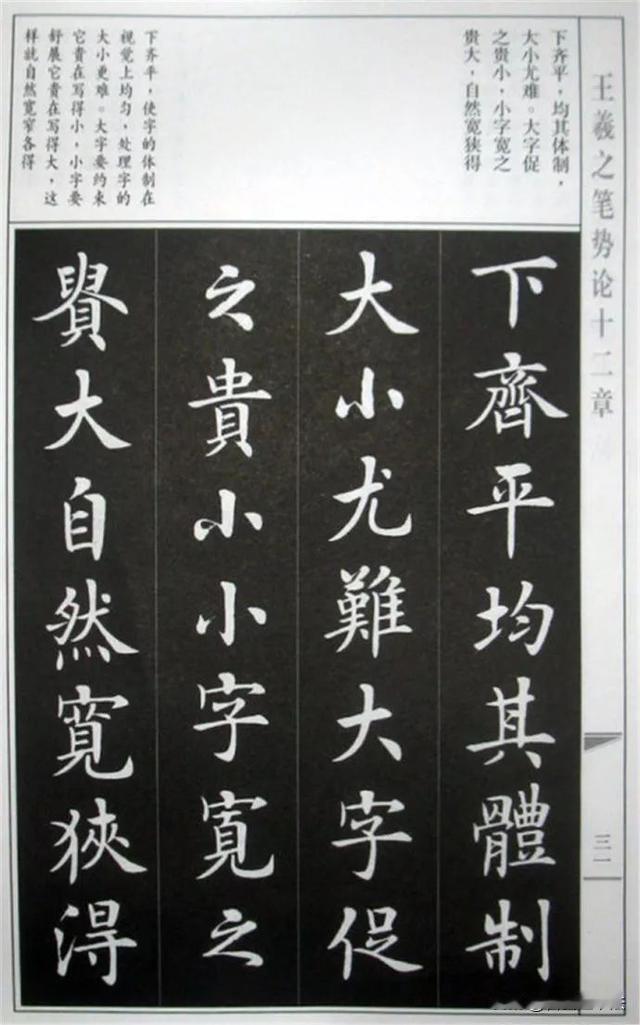 王羲之笔势论十二章
三一
下齐平，均其体制，
大小尤难。大字促
之贵小，小字宽之
贵大，自然宽狭得
下齐平，使字的体制在
视觉上均匀，处理字的
大小更难。大字要约束
它贵在写得小，小字要
舒展它贵在写得大，这
样就自然宽窄各得
下齊平均其體制
大小尤難大字促
之貴小小字寬之
貴大自然寬狹得